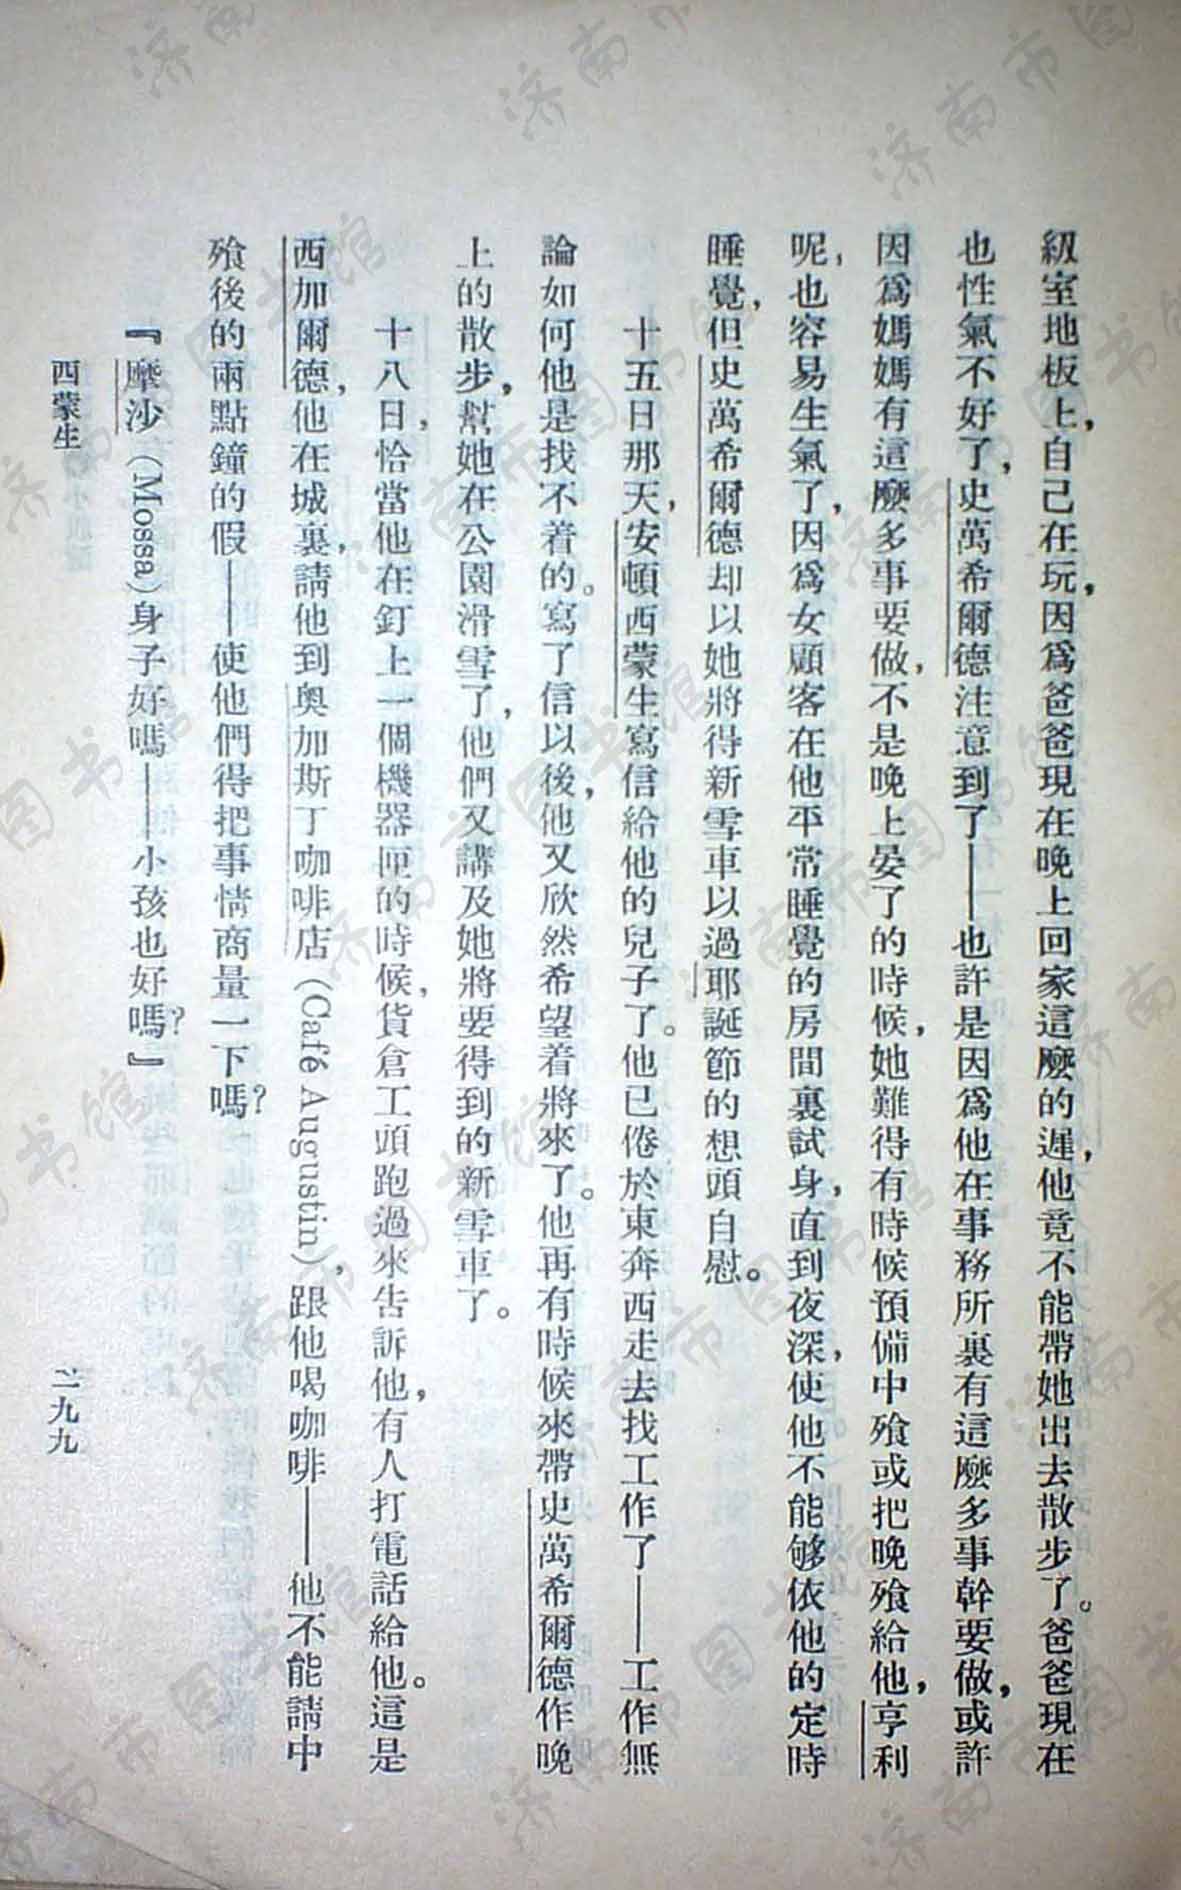 級室地板上，自己在玩，因爲爸爸現在晚上回家這麽的遲，他竟不能帶她出去散步了。爸爸現在
也性氣不好了，史萬希爾德注意到了——也許是因爲他在事務所裏有這麽多事幹要做，或許
因爲媽媽有這麽多事要做，不是晚上晏了的時候，她難得有時候預備中飱或把晚飱給他，亨利
呢，也容易生氣了，因爲女顧客在他平常睡覺的房間裏試身，直到夜深，使他不能够依他的定時
睡覺，但史萬希爾德却以她將得新雪車以過耶誕節的想頭自慰。
十五日那天，安頓西蒙生寫信給他的兒子了。他已倦於東奔西走去找工作了——工作無
論如何他是找不着的。寫了信以後，他又欣然希望着將來了。他再有時候來帶史萬希爾德作晚
上的散步，幫她在公園滑雪了，他們又講及她將要得到的新雪車了。
十八日，恰當他在釘上一個機器匣的時候，貨倉工頭跑過來告訴他，有人打電話給他。這是
西加爾德，他在城裏，請他到奥加斯丁咖啡店（Café Augustin），跟他喝咖啡——他不能請中
飱後的兩點鐘的假——使他們得把事情商量一下嗎？
『摩沙（Mossa）身子好嗎——小孩也好嗎？』
西蒙生
二九九